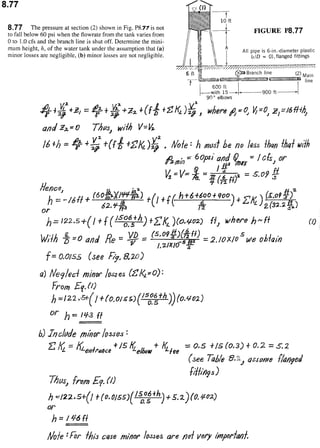 8.77
8.77 The pressure at section (2) shown in Fig. P8.77 is not
to fall below 60 psi when the flowrate from the tank varies from
0 to 1.0 cfs and the branch line is shut off. Determine the mini-
mum height, h, of the water tank under the assumption that (a)
minor losses are negligible, (b) minor losses are not negligible.
(1)
10 ft
h
FIGURE P8.77
All pipe is 6-in.-diameter plastic
(ε/D = 0), flanged fittings
6 ft
(2)
Branch line
Main
line
600 ft
with 15
90° elbows
900 ft
p₁/γ + V₁²/2g + z₁ = p₂/γ + V₂²/2g + z₂ + (f ℓ/D + ΣK_L) V²/2g , where p₁=0, V₁=0, z₁=16ft+h,
and z₂=0 Thus, with V=V₂
16+h = p₂/γ + V²/2g (1 + f ℓ/D + ΣK_L) . Note: h must be no less than that with
p₂min = 60psi and Q max = 1 cfs, or
V₂=V= Q/A = 1 ft³/s / (π/4 (6/12 ft)²) = 5.09 ft/s
Hence,
h = -16ft + (60 lb/in²)(144 in²/ft²) / 62.4 lb/ft³ + (1 + f (h+6+600+900)/(6/12) + ΣK_L) (5.09 ft/s)² / 2(32.2 ft/s²)
or
h=122.5+(1 + f (1506+h / 0.5) + ΣK_L)(0.402) ft, where h~ft (1)
With ε/D =0 and Re = VD/ν = (5.09 ft/s)(6/12 ft) / 1.21×10⁻⁵ ft²/s = 2.10×10⁵ we obtain
f = 0.0155 (see Fig. 8.20)
a) Neglect minor losses (ΣK_L=0):
From Eq.(1)
h =122.5+(1+(0.0155)(1506+h / 0.5))(0.402)
or h = 143 ft
b) Include minor losses:
ΣK_L = K_L entrance + 15 K_L elbow + K_L tee = 0.5 +15 (0.3) + 0.2 = 5.2
(see Table 8.2, assume flanged
fittings)
Thus, from Eq.(1)
h =122.5+(1 + (0.0155)(1506+h / 0.5) + 5.2)(0.402)
or
h = 146 ft
Note: For this case minor losses are not very important.